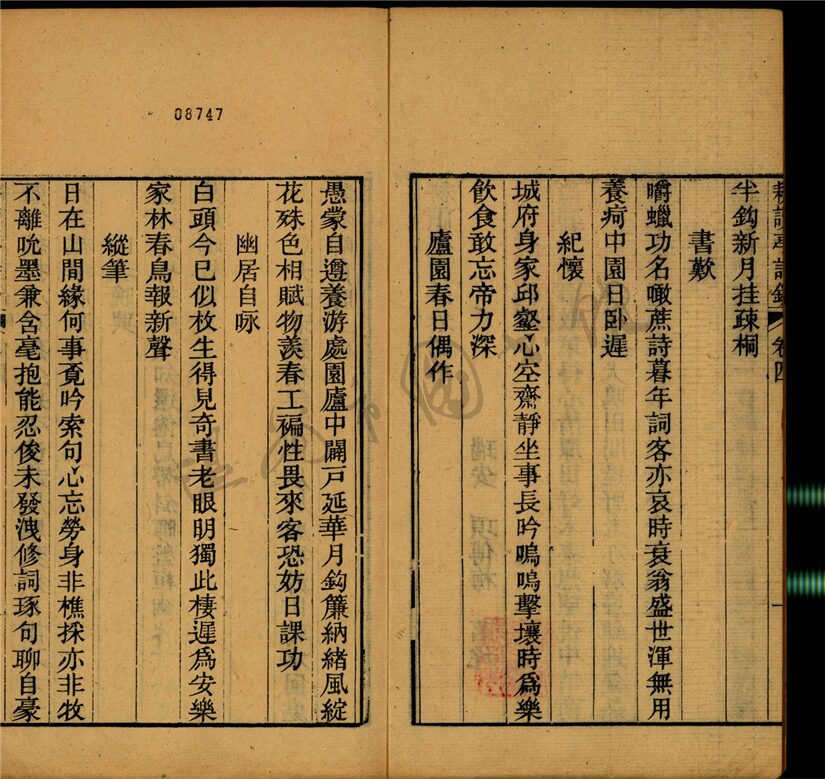 08747
耕讀亭詩鈔 卷四 一
半鈎新月挂疎桐
書歎
嚼蠟功名噉蔗詩暮年詞客亦哀時衰翁盛世渾無用
養疴中園日臥遲
紀懷
城府身家邱壑心空齋靜坐事長吟嗚嗚擊壤時爲樂
飲食敢忘帝力深
廬園春日偶作
愚蒙自遵養游處園廬中闢戸延華月鈎簾納緒風綻
花殊色相賦物羨春工褊性畏來客恐妨日課功
幽居自咏
白頭今已似枚生得見奇書老眼明獨此棲遲爲安樂
家林春鳥報新聲
縱筆
日在山間緣何事覔吟索句心忘勞身非樵採亦非牧
不離吮墨兼含毫抱能忍俊未發洩修詞琢句聊自豪